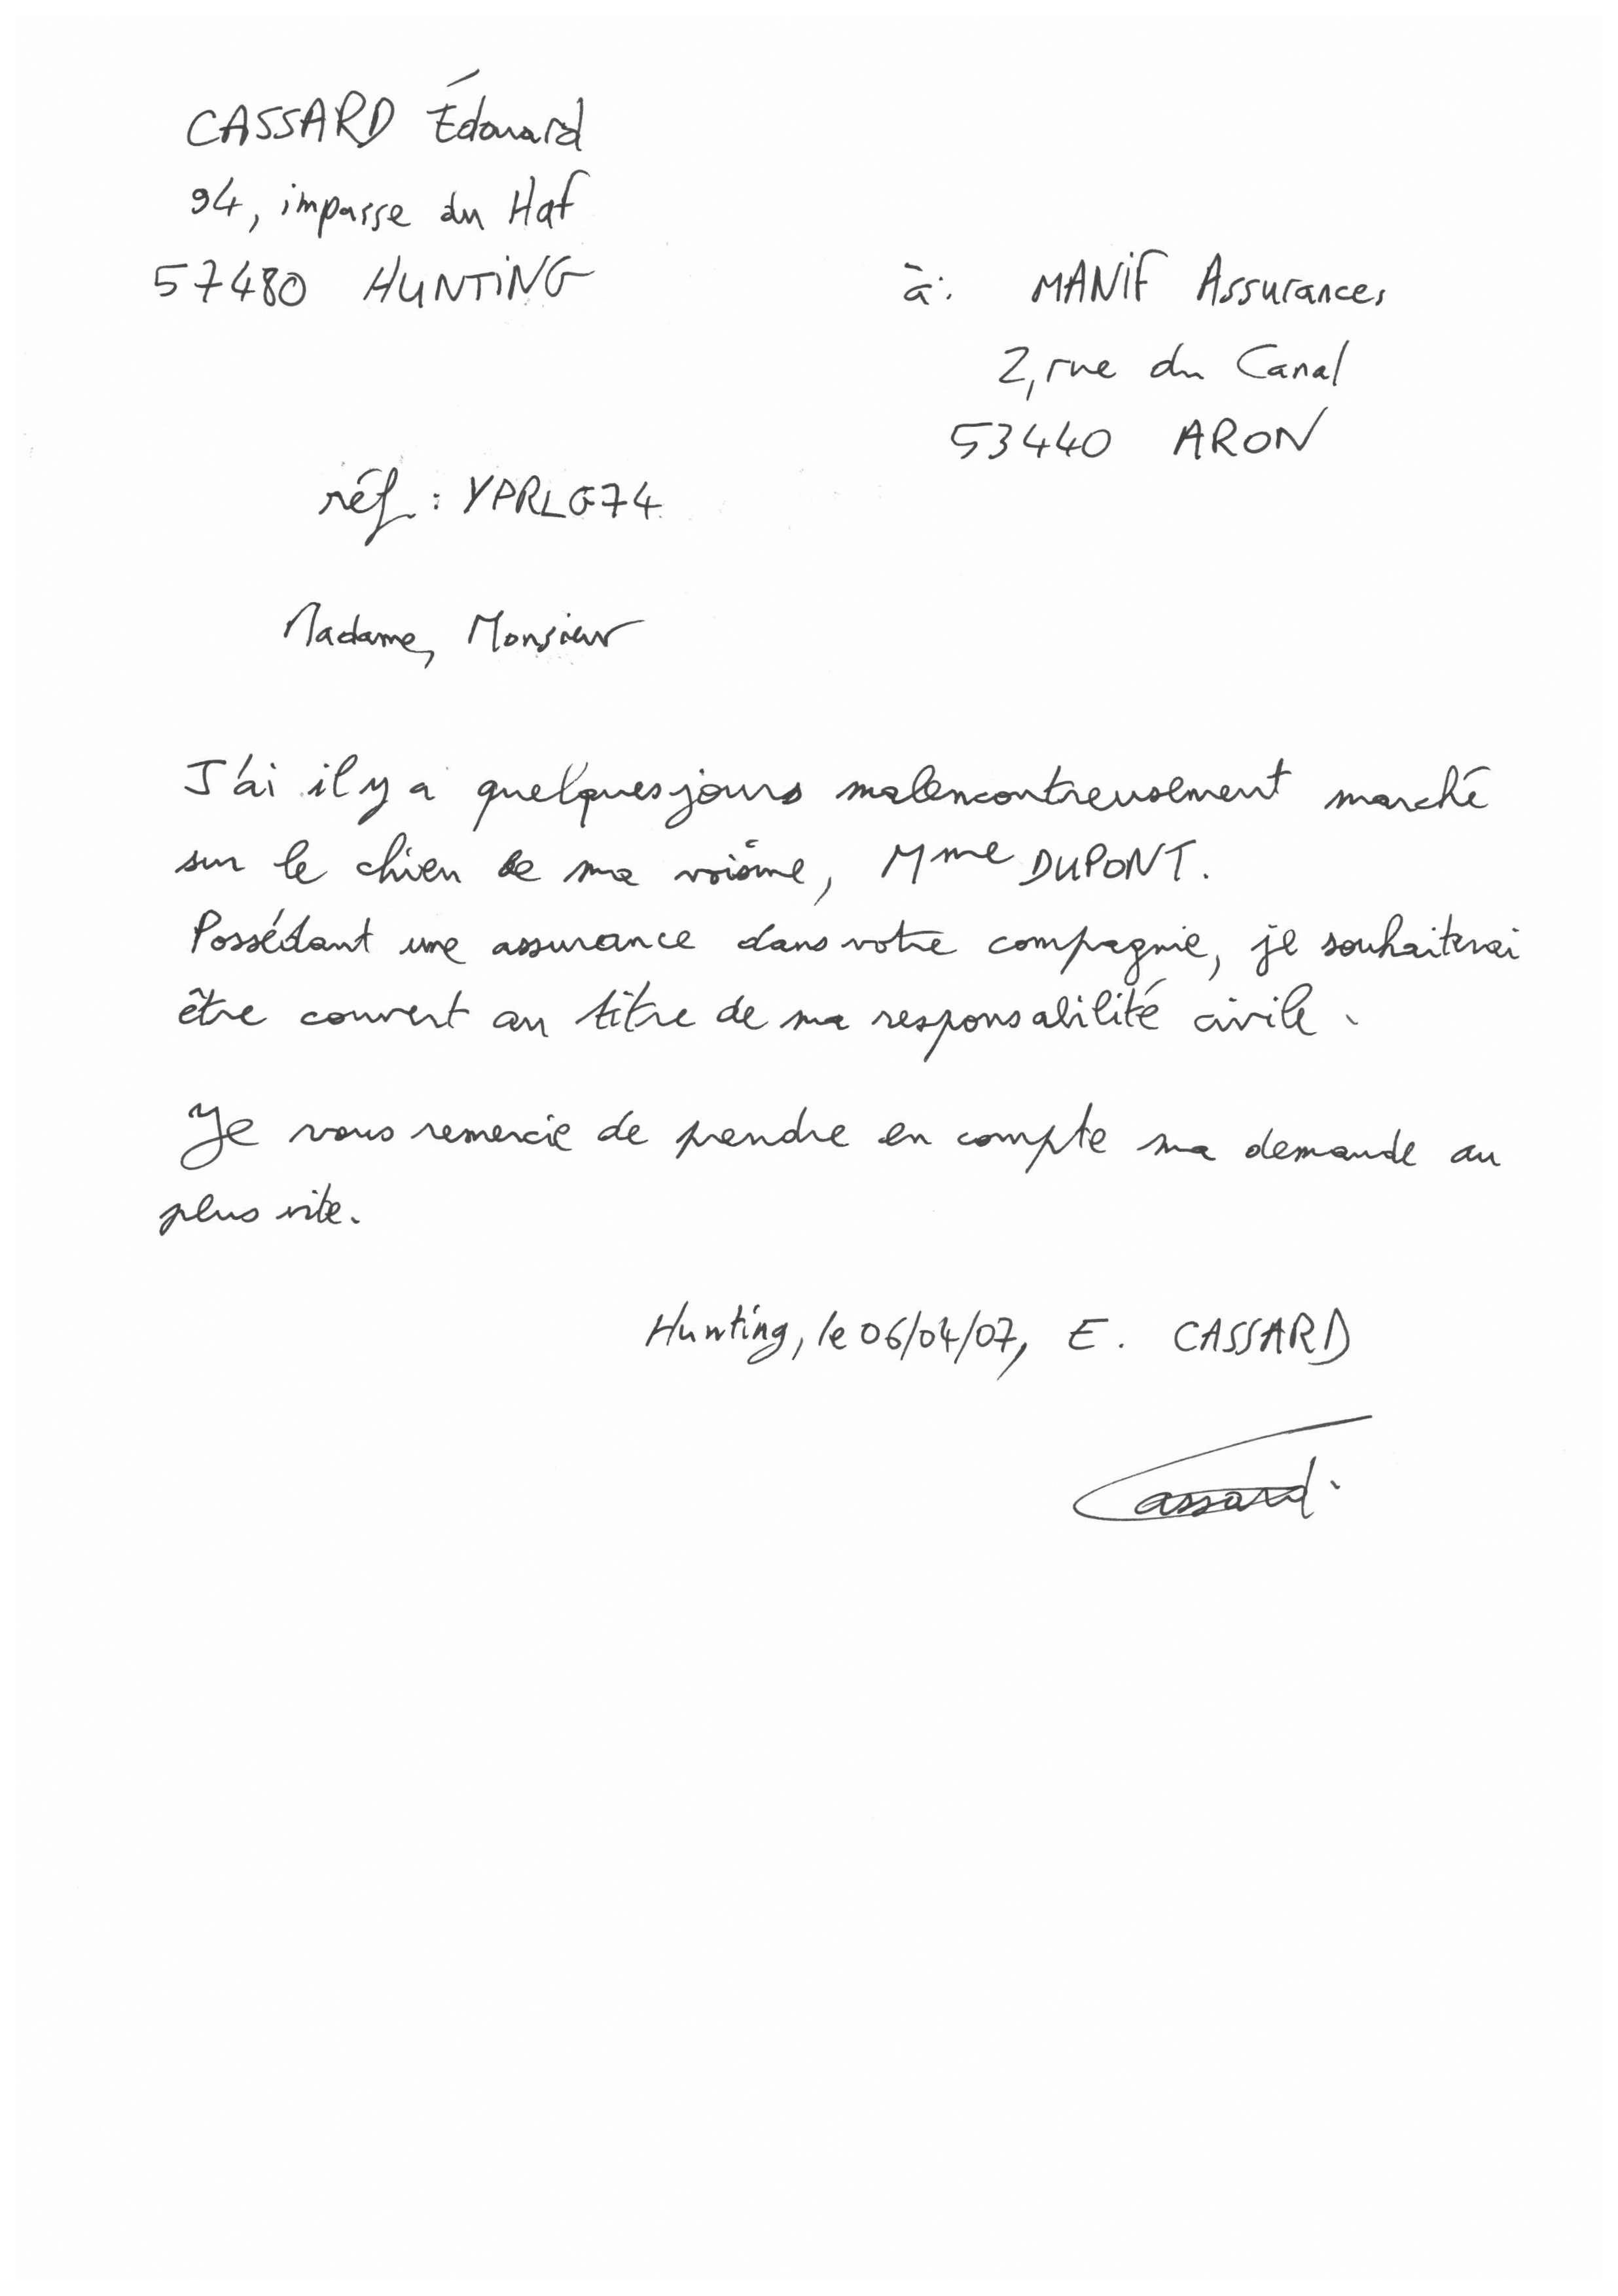 CASSARD Édouard
94, impasse du Haf
57480 HUNTING
à: MANIF Assurances
2, rue du Canal
53440 ARON
réf : YPRLG74
Madame, Monsieur
J'ai il y a quelques jours malencontreusement marché
sur le chien de ma voisine, Mme DUPONT.
Possédant une assurance dans votre compagnie, je souhaiterai
être couvert au titre de ma responsabilité civile.
Je vous remercie de prendre en compte ma demande au
plus vite.
Hunting, le 06/04/07, E. CASSARD
Cassard